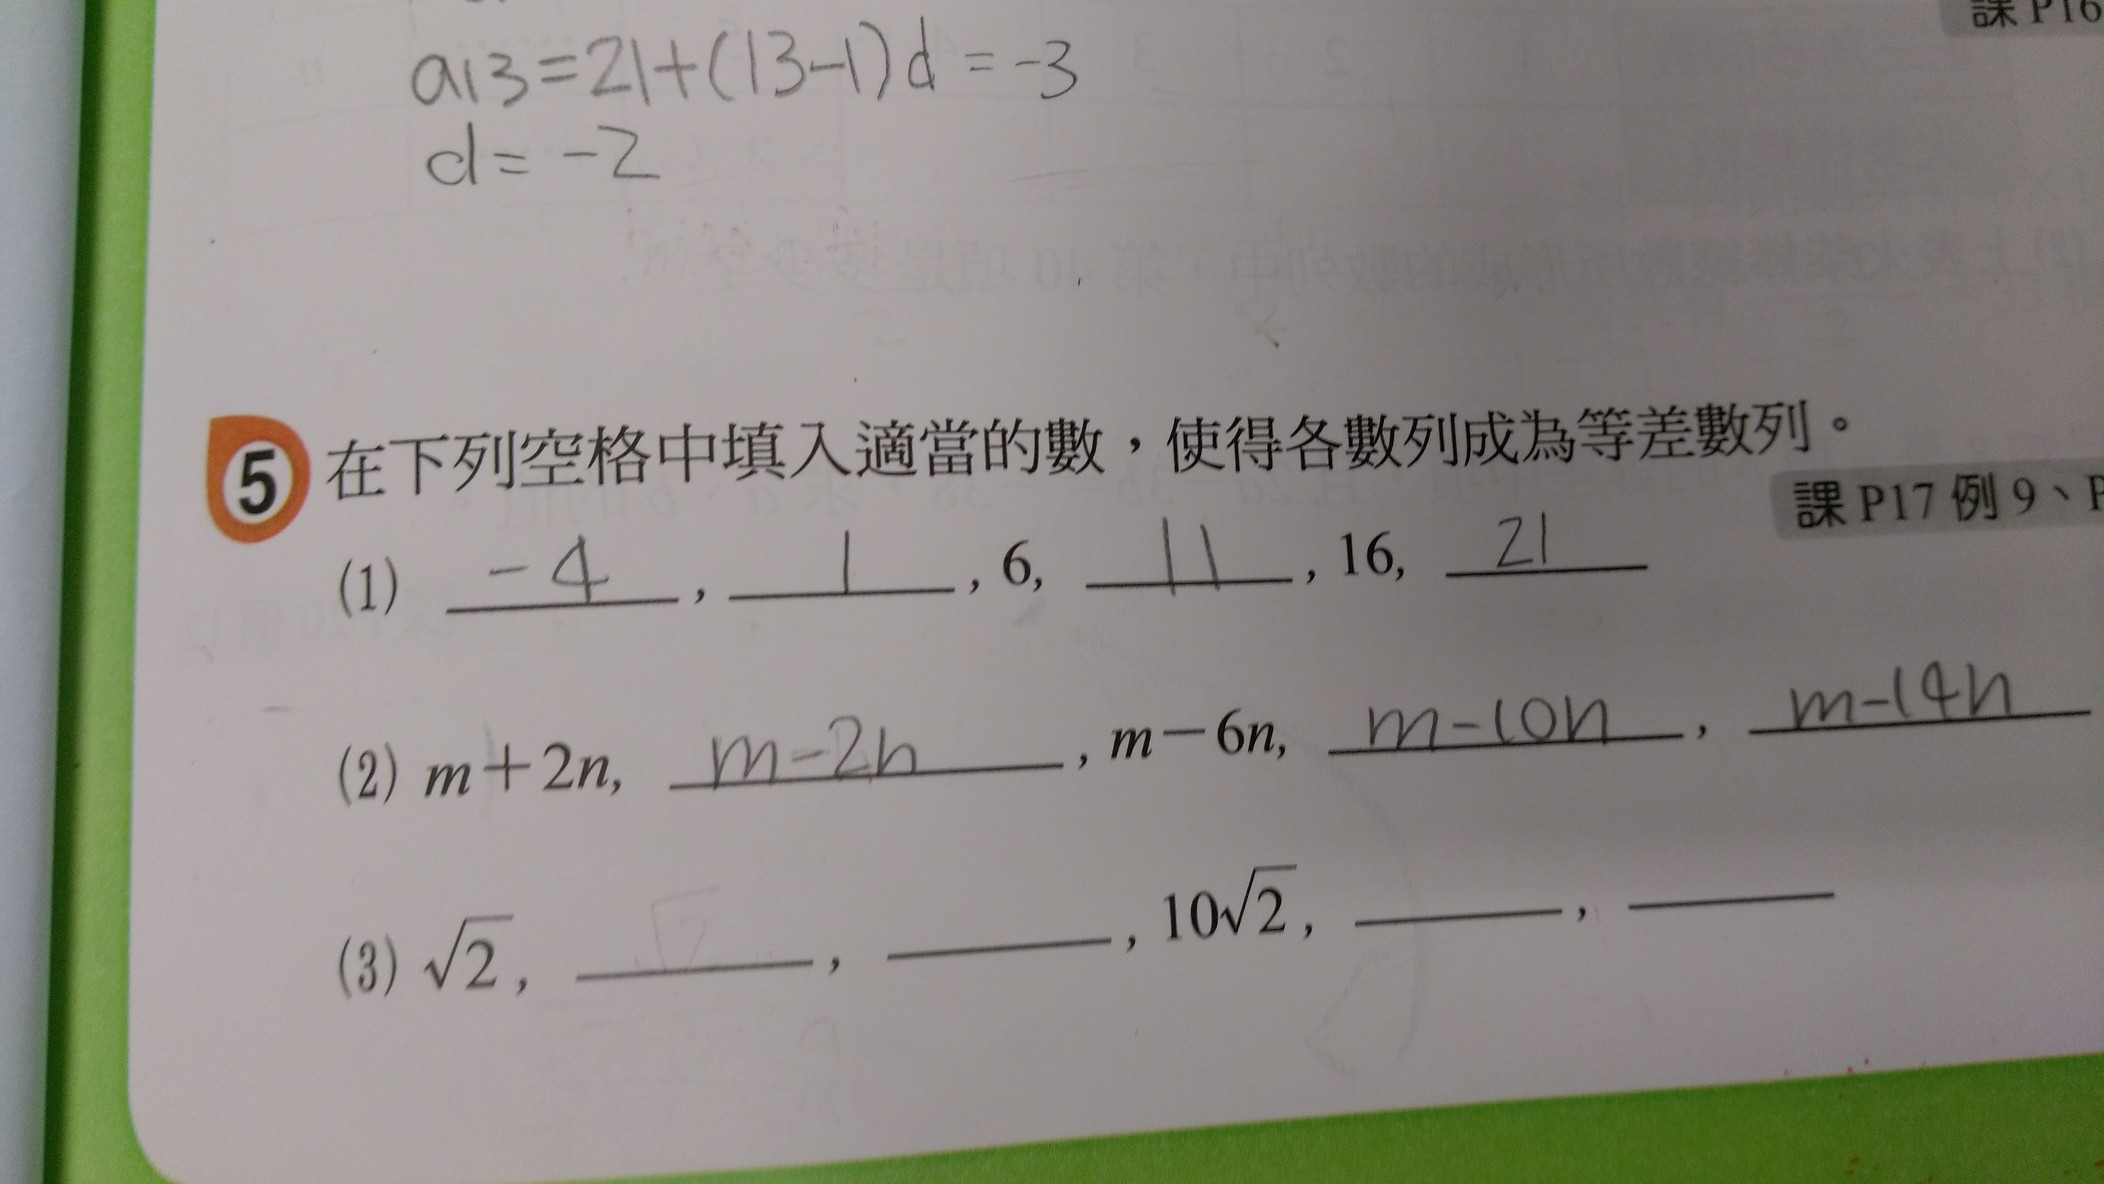 課 P16
a13=21+(13-1)d=-3
d=-2
5 在下列空格中填入適當的數，使得各數列成為等差數列。
課 P17 例 9、P
(1) -4 , 1 , 6, 11 , 16, 21
(2) m+2n, m-2n , m-6n, m-10n , m-14n
(3) √2, ____ , ____ , 10√2, ____ , ____